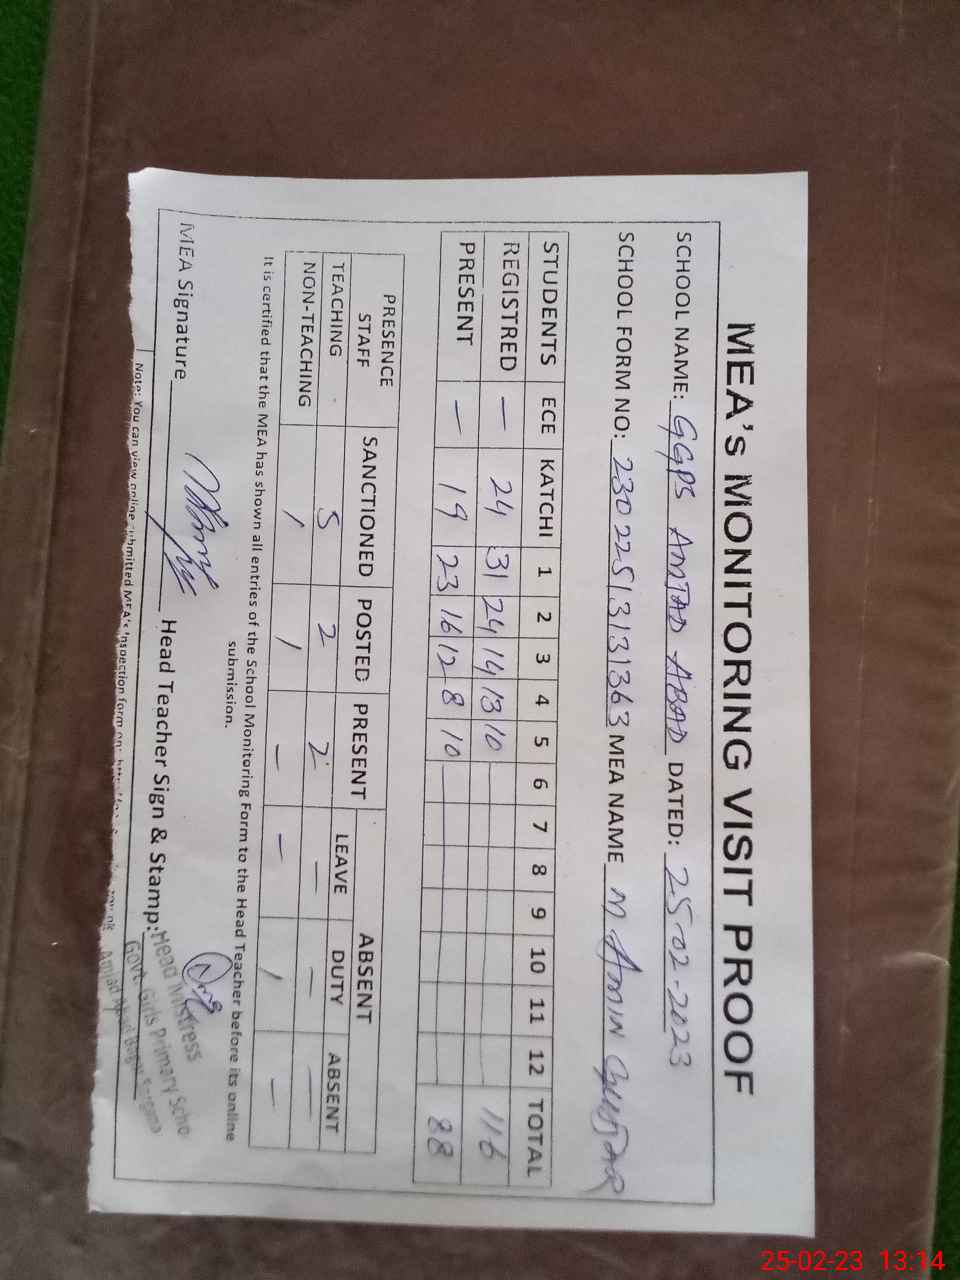 MEA's MONITORING VISIT PROOF
SCHOOL NAME: GGPS AMJAD ABAD DATED: 25-02-2023
SCHOOL FORM NO: 23022513131363 MEA NAME M AMIN
STUDENTS ECE KATCHI 1 2 3 4 5 6 7 8 9 10 11 12 TOTAL
REGISTRED — 24 31 24 14 13 10 116
PRESENT — 19 23 16 12 8 10 88
PRESENCE STAFF SANCTIONED POSTED PRESENT ABSENT
LEAVE DUTY ABSENT
TEACHING 5 2 2 — — —
NON-TEACHING 1 1 — — / —
It is certified that the MEA has shown all entries of the School Monitoring Form to the Head Teacher before its online
submission.
MEA Signature Head Teacher Sign & Stamp:
Head Mistress
Govt. Girls Primary Schoo
Amjad Abad
Note: You can view online submitted MEA's Inspection form on:
25-02-23 13:14